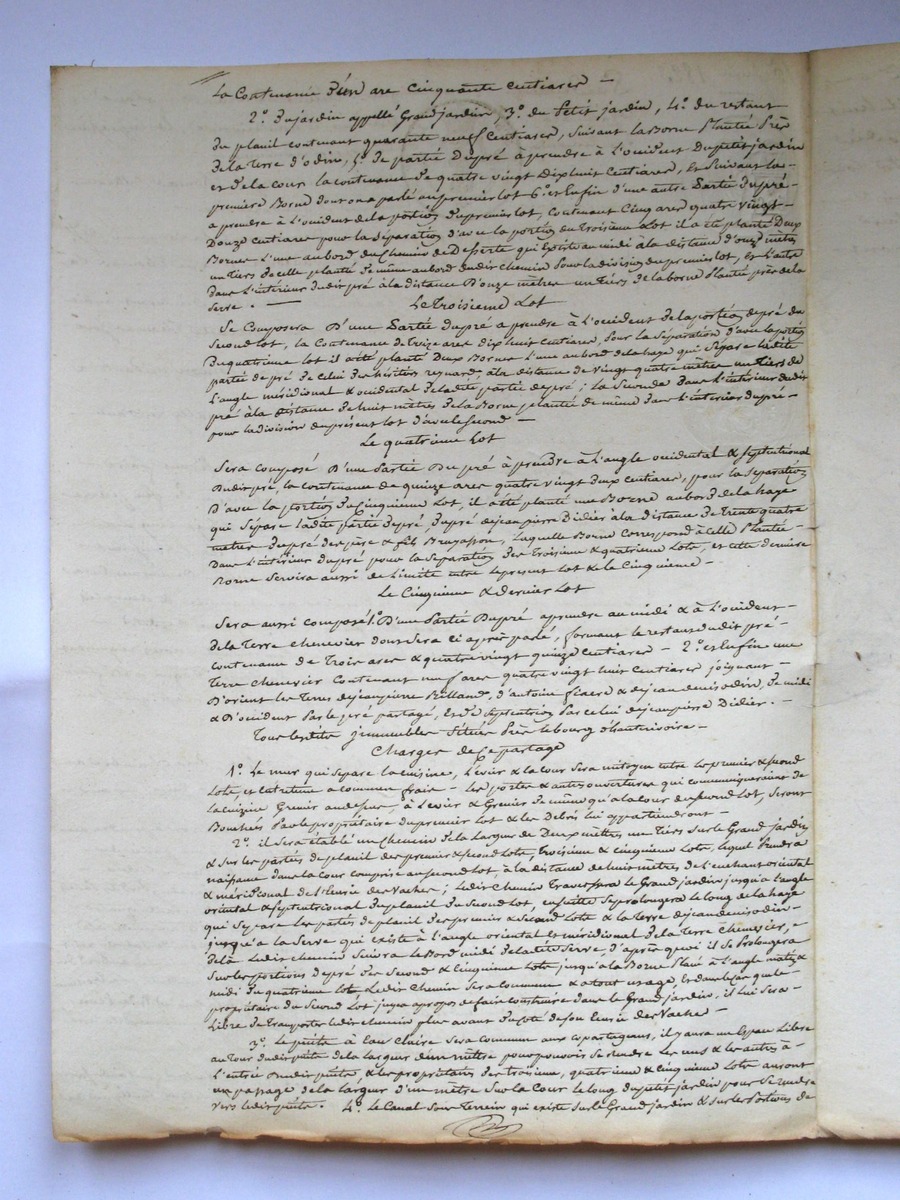 La Contenance D'un are Cinquante Centiares —
2.° Du jardin appellé Grand jardin, 3.° du Petit jardin, 4.° du restant
Du plauil contenant quarante neuf Centiares, suivant la Borne Plantée Près
De la Terre d'odin, 5.° De partie Dupré à prendre à l'occident Du petit jardin
et De la Cour la contenance De quatre vingt Dix huit Centiares, et Suivant la -
premiere Borne dont on a parlé au premier lot 6.° et Enfin d'une autre Partie Dupré -
a prendre à L'occident de la portion Du premier lot, Contenant Cinq ares quatre vingt -
Douze Centiares pour la Séparation d'avec la portion Du Troisième Lot il a été planté Deux
Bornes L'une au bord Du Chemin de Desserte qui Existe au midi à la distance d'onze mètres
un Tiers De celle plantée De même au bord Dudit Chemin Pour la division Du premier lot, et L'autre
Dans L'intérieur Dudit pré à la distance D'onze mètres un Tiers de la borne Plantée près de la
Serre. —
Le Troisieme Lot
Se Composera D'une Partie Dupré a prendre à L'occident De la portion de pré du
Second Lot, la Contenance De Treize ares Dix huit Centiares, Pour la Séparation D'avec la portion
Du quatrieme Lot il a été planté Deux Bornes L'une au bord de la haye qui Sépare ladite
partie de pré De Celui Des héritiers reynard, à la distance de vingt quatre mètres un Tiers De
L'angle méridional & occidental De ladite partie de pré ; la Seconde Dans L'intérieur Dudit
pré à la Distance De huit mètres De la Borne plantée de même Dans L'intérieur Dupré -
pour la division Du présent Lot d'avec le Second —
Le quatrieme Lot
Sera composé D'une Partie Du pré à prendre à L'angle occidental & Septentrional
Dudit pré, la contenance de quinze ares quatre vingt Deux Centiares, pour la Séparation
D'avec la portion Du Cinquieme Lot, il a été planté une Borne au bord de la haye
qui Sépare ladite partie Dupré, Dupré de jean pierre Didier à la Distance De Trente quatre
mètres Dupré Des père & fils Bruyasson, Laquelle Borne Correspond à Celle Plantée -
Dans L'intérieur Dupré pour la Séparation Des Troisième & quatrieme Lots, et cette derniere
Borne Servira aussi de Limite entre le present Lot & le Cinquieme —
Le Cinquieme & dernier Lot
Sera aussi composé 1.° D'une Partie Dupré a prendre au midi & à L'occident -
De la Terre chenevier dont Sera Ci après parlé, formant le restant dudit pré -
contenance De Trois ares & quatre vingt quinze Centiares — 2.° et Enfin une
Terre chenevier Contenant neuf ares quatre vingt huit Centiares joignant -
D'orient les Terres de jean pierre Billand, d'antoine & de jean denis odin, De midi
& D'occident Par le pré partagé, Et De Septentrion Par celui de jean pierre Didier. -
Tous lesdits immeubles Situés Près le bourg d'hauterivoire —
Charges de Ce partage
1.° Le mur qui Sépare la Cuisine, L'évier & la Cour Sera mitoyen entre les premier & second
Lots, et Entretenu a commun frais — Les portes & autres ouvertures qui communiqueraient de
la Cuizine Grenier au dessus, à L'évier & Grenier De même qu'à la Cour du Second Lot, Seront
Bouchés Par le propriétaire Du premier Lot & les Debris lui appartiendront —
2.° il Sera établi un Chemin De la Largeur de Deux mètres un Tiers Sur le Grand jardin
& Sur les parties de plauil des premier & Second Lots, Troisieme & Cinquieme Lots, lequel Prendra
naissance dans la Cour comprise au Second Lot, à la distance de huit mètres de l'enchant oriental
& méridional de l'Ecurie des Vaches ; Ledit Chemin Traversera le Grand jardin jusqu'à l'angle
oriental & Septentrional Du plauil Du Second Lot, ensuitte Se prolongera le long de la haye
qui Sépare les parties de plauil Des premier & Second Lots & la Terre de jean denis odin -
jusqu'a la Serre qui existe à L'angle oriental et méridional De la Terre chenevier, -
De là Ledit chemin Suivra Le Bord midi De ladite Serre, d'après quoi il Se Prolongera
Sur les portions de pré Des Second & Cinquieme Lots jusqu'à la Borne Placé à L'angle matin &
midi Du quatrieme Lot, Ledit Chemin Sera Commun & a tout usage, Et dans le Cas que le -
propriétaire Du Second Lot juge a propos de faire construire dans le Grand jardin, il Lui Sera -
Libre De Transporter ledit chemin plus avant Du Coté de Son Ecurie Des Vaches —
3.° Le puits à Eau Claire Sera Commun aux Copartageans, il y aura un Espace Libre
au Tour dudit puits de la Largeur d'un mètre pour pouvoir Se rendre Les uns & les autres à -
L'entrée Dudit puits, & les propriétaires Des Troisieme, quatrieme & Cinquieme Lots auront
un passage De la Largeur d'un mètre Sur la Cour le long Du petit jardin pour Se rendre
vers ledit puits. 4.° Le Canal Sous Terrein qui existe Sur le Grand jardin & sur les Portions de